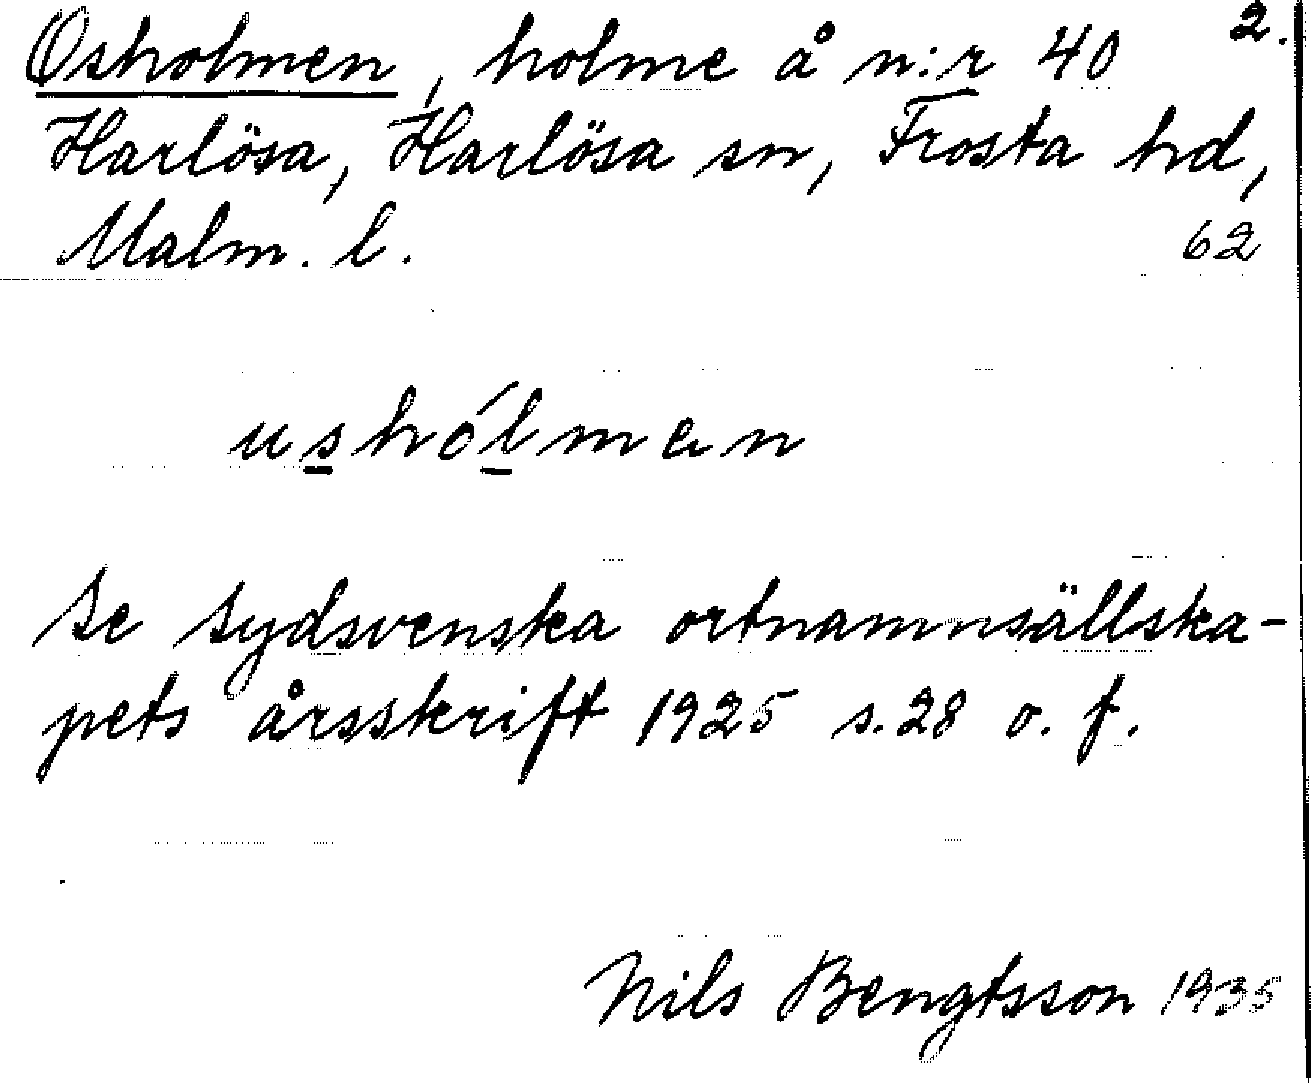 Osholmen, holme å n:r 40 2.
Harlösa, Harlösa sn, Frosta hd,
Malm. l. 62
ushólmen
Se Sydsvenska ortnamnsällska-
pets årsskrift 1925 s. 28 o. f.
Nils Bengtsson 1935